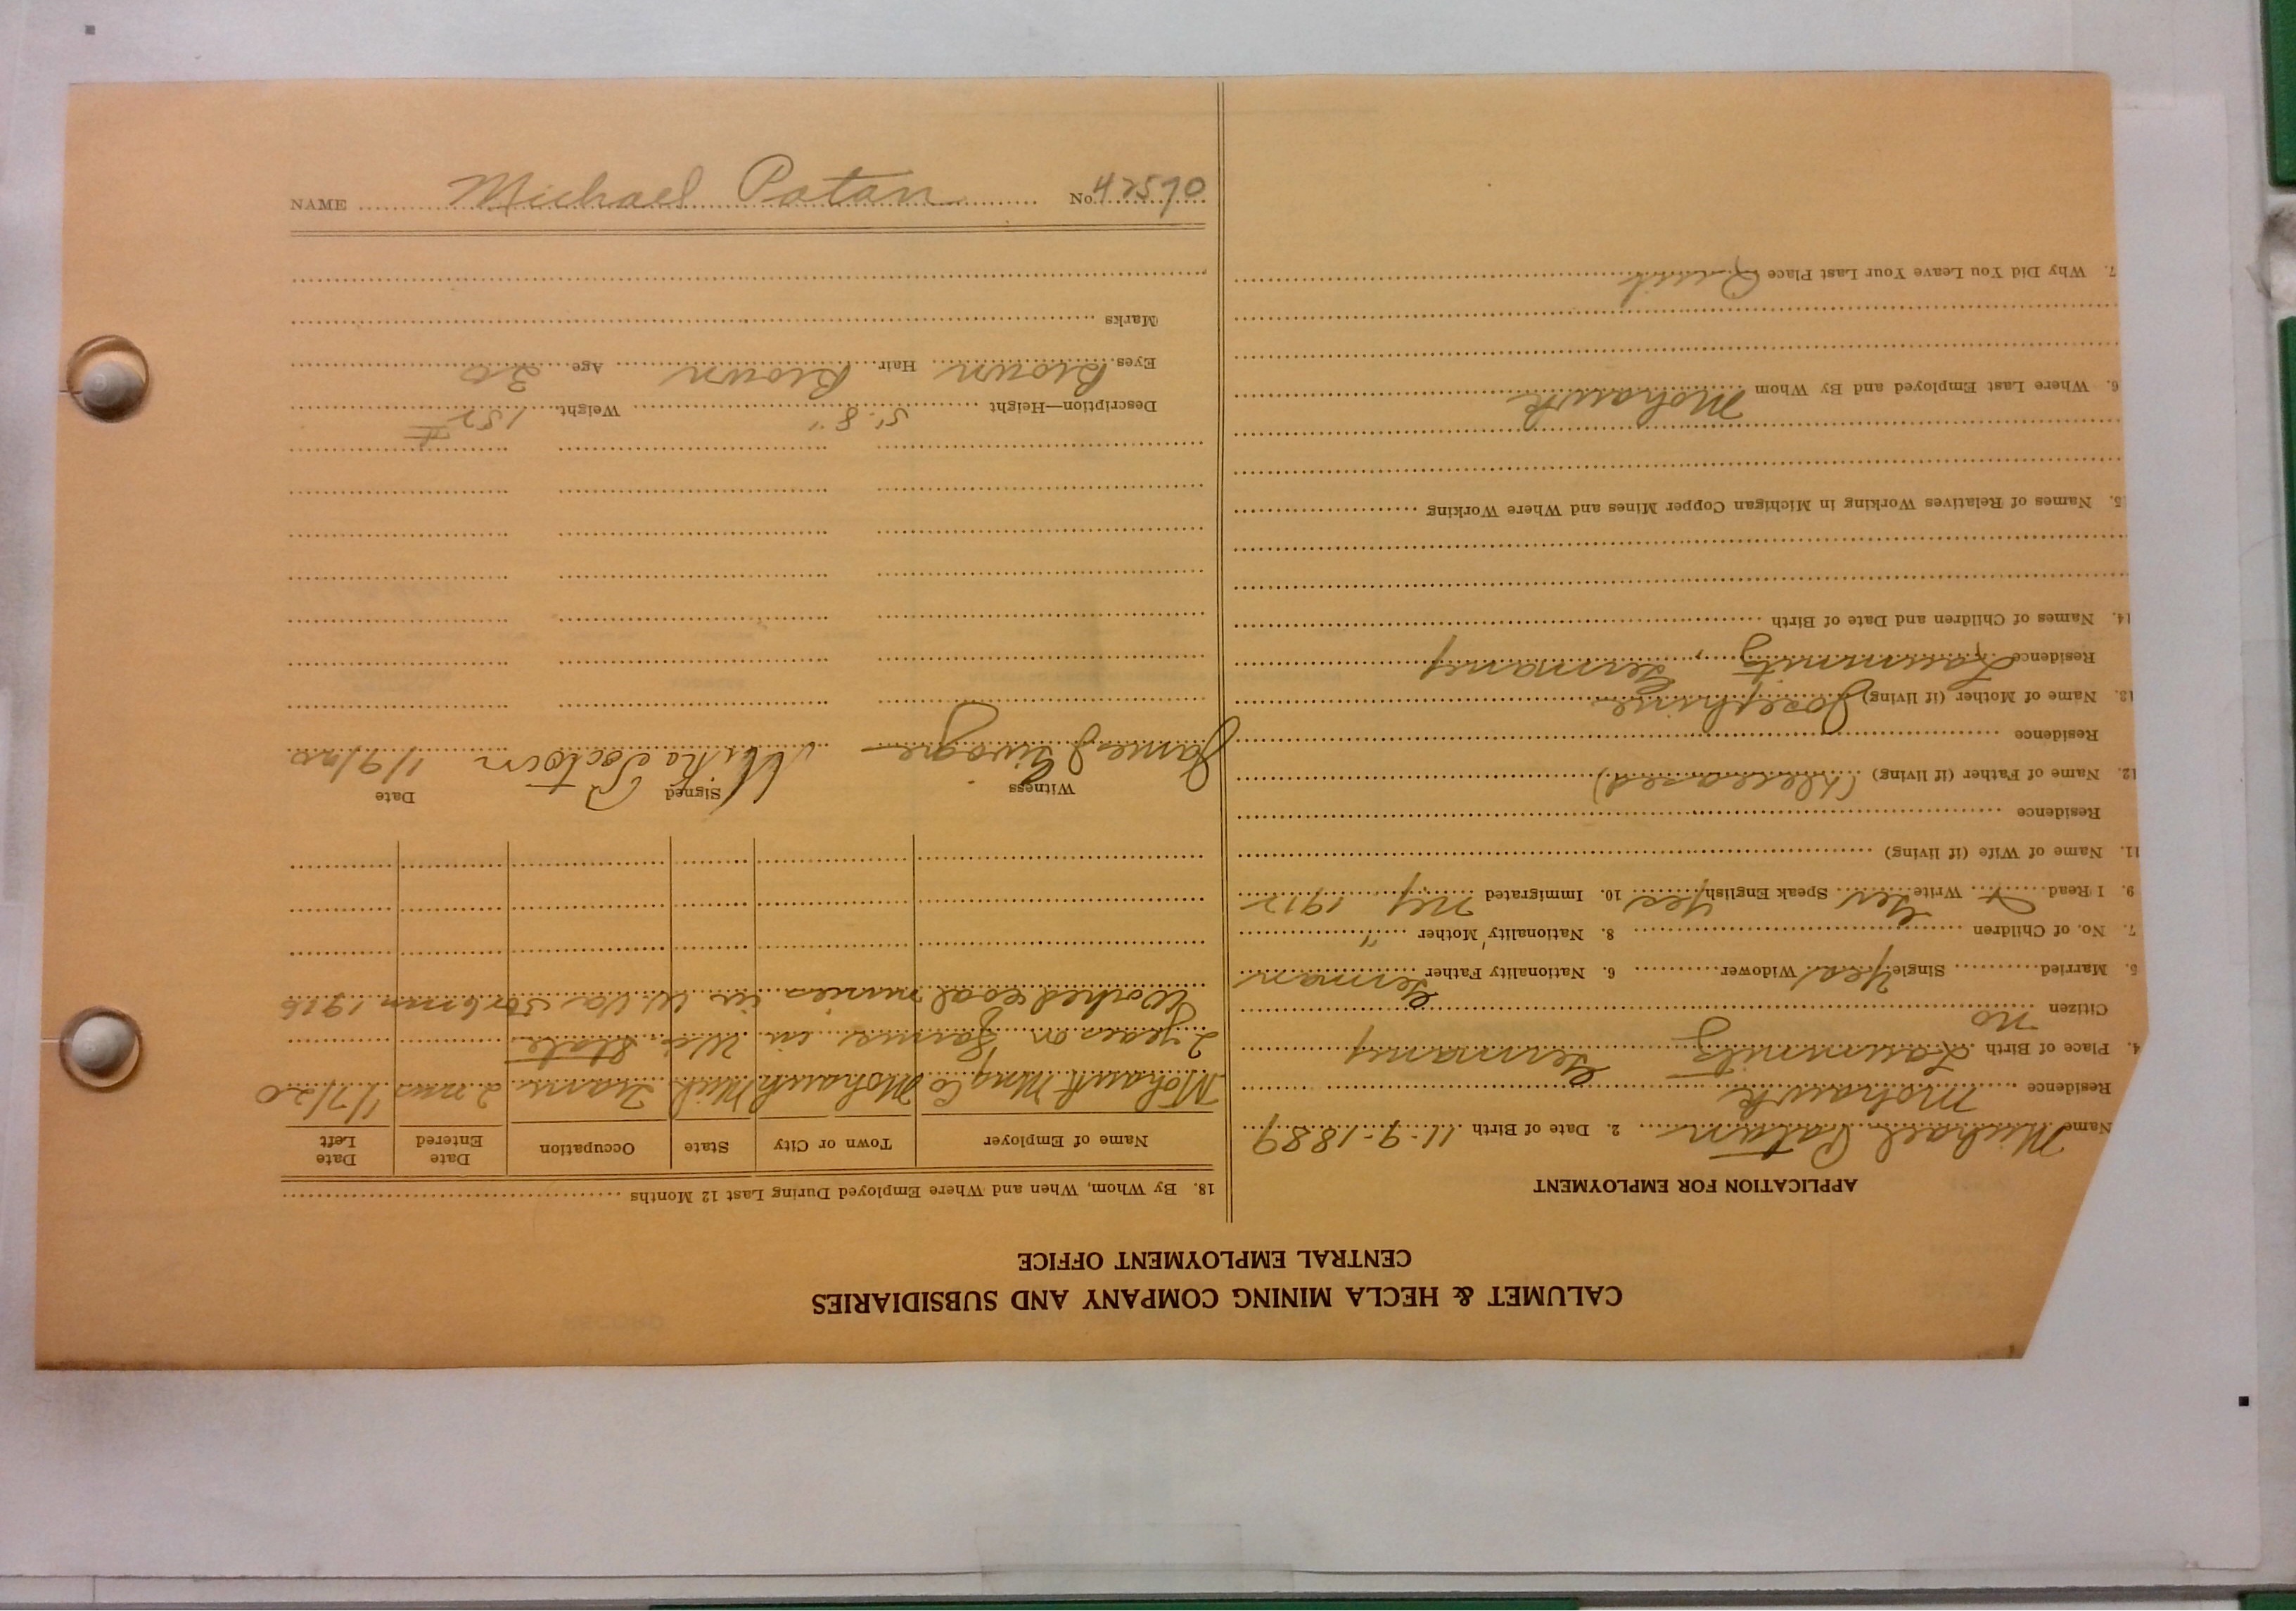 NAME Michael Patan No. 42570
CALUMET & HECLA MINING COMPANY AND SUBSIDIARIES
CENTRAL EMPLOYMENT OFFICE
APPLICATION FOR EMPLOYMENT
Name Michael Patan 2. Date of Birth 11-9-1889
Residence Mohawk
4. Place of Birth Germany
Citizen no
5. Married Single Yes Widower 6. Nationality Father German
7. No. of Children 8. Nationality Mother "
9. I Read Write Yes Speak English Yes 10. Immigrated NY 1912
11. Name of Wife (if living)
Residence
12. Name of Father (if living) (deceased)
Residence
13. Name of Mother (if living) Josephine
Residence Germany
14. Names of Children and Date of Birth
15. Names of Relatives Working in Michigan Copper Mines and Where Working
6. Where Last Employed and By Whom Mohawk
7. Why Did You Leave Your Last Place Quit
18. By Whom, When and Where Employed During Last 12 Months
Name of Employer Town or City State Occupation Date Entered Date Left
Mohawk Mng Co Mohawk Mich Tram 2 mos 1/7/20
2 years on farms in State
Worked coal mines in W. Va 5 or 6 mos 1916
Witness Signed Date
James 1/9/20
Description—Height 5' 8" Weight 152 #
Eyes Brown Hair Brown Age 30
Marks